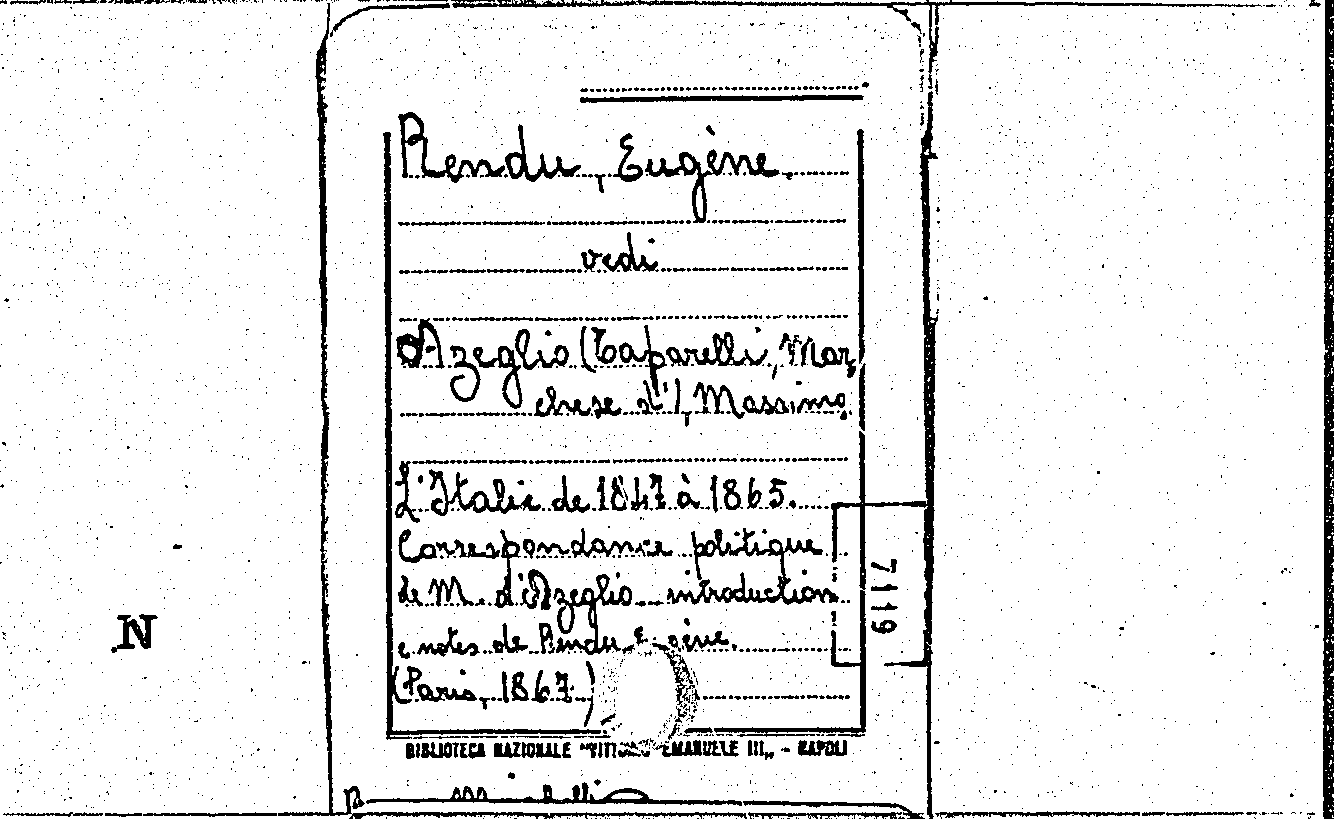 Rendu, Eugène.
vedi
Azeglio (Taparelli, Mar,
chese d'), Massimo.
L'Italie de 1847 à 1865.
Correspondance politique
de M. d'Azeglio introduction
e notes de Rendu E gène.
(Paris, 1867)
7119
N
BIBLIOTECA NAZIONALE "VITTORIO EMANUELE III„ - NAPOLI